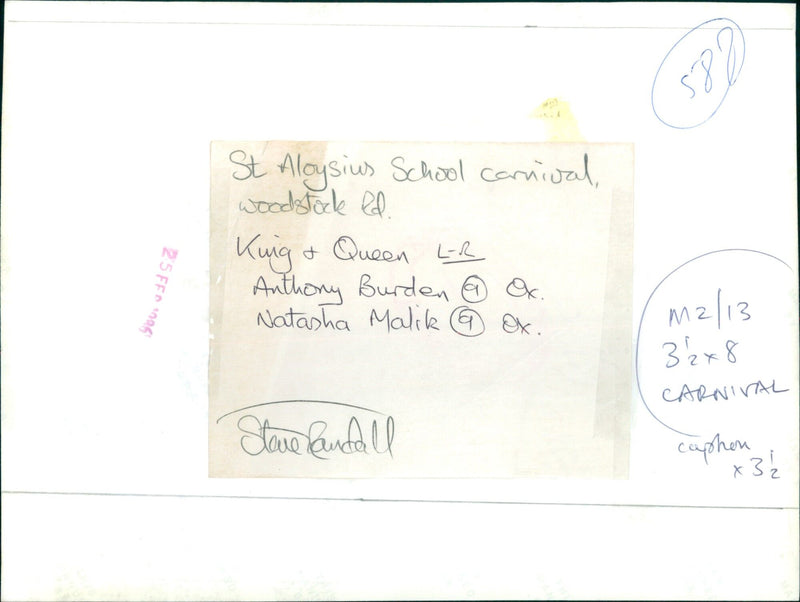 587
St Aloysius School carnival,
woodstock Rd.
King + Queen L-R
Anthony Burden 9 Ox.
Natasha Malik 9 Ox.
Steve Randall
25 FEB 1996
M2/13
3½ x 8
CARNIVAL
caption
x 3½